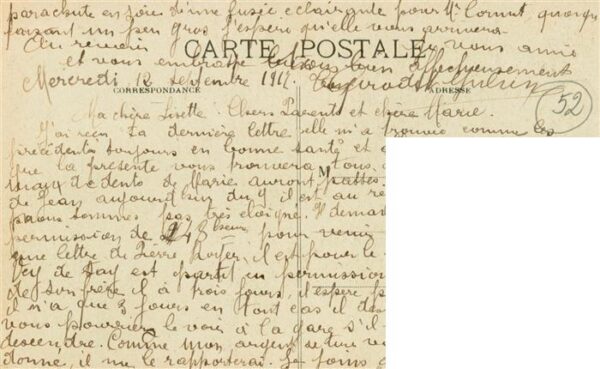 parachute en soie d'une fusée eclairante pour Mr Cornut, quoique
faisant un peu gros j'espère qu'elle vous arrivera.
Au revoir vous aime
et vous embrasse tous bien affectueusement
CARTE POSTALE
Mercredi. 12 septembre 1917.
CORRESPONDANCE
ADRESSE
52
Ma chère Lisette. Chers Parents et chère Marie.
J'ai reçu ta dernière lettre, elle m'a trouvé comme les
précédentes toujours en bonne santé et
que la présente vous trouvera tous.
maux de dents de Marie auront passés.
M
de Jean aujourd'hui du 9 il est au
nous sommes pas très éloigné. Il
permission de 48 heures pour venir
une lettre de Pierre, il est pour le
est partit en permission
de son frère il a trois jours, il espère
il n'a que 3 jours en tout cas il
vous pourriez le voir à la gare s'il
descendre. Comme mon argent
donné, il me le rapporterai. Je joins